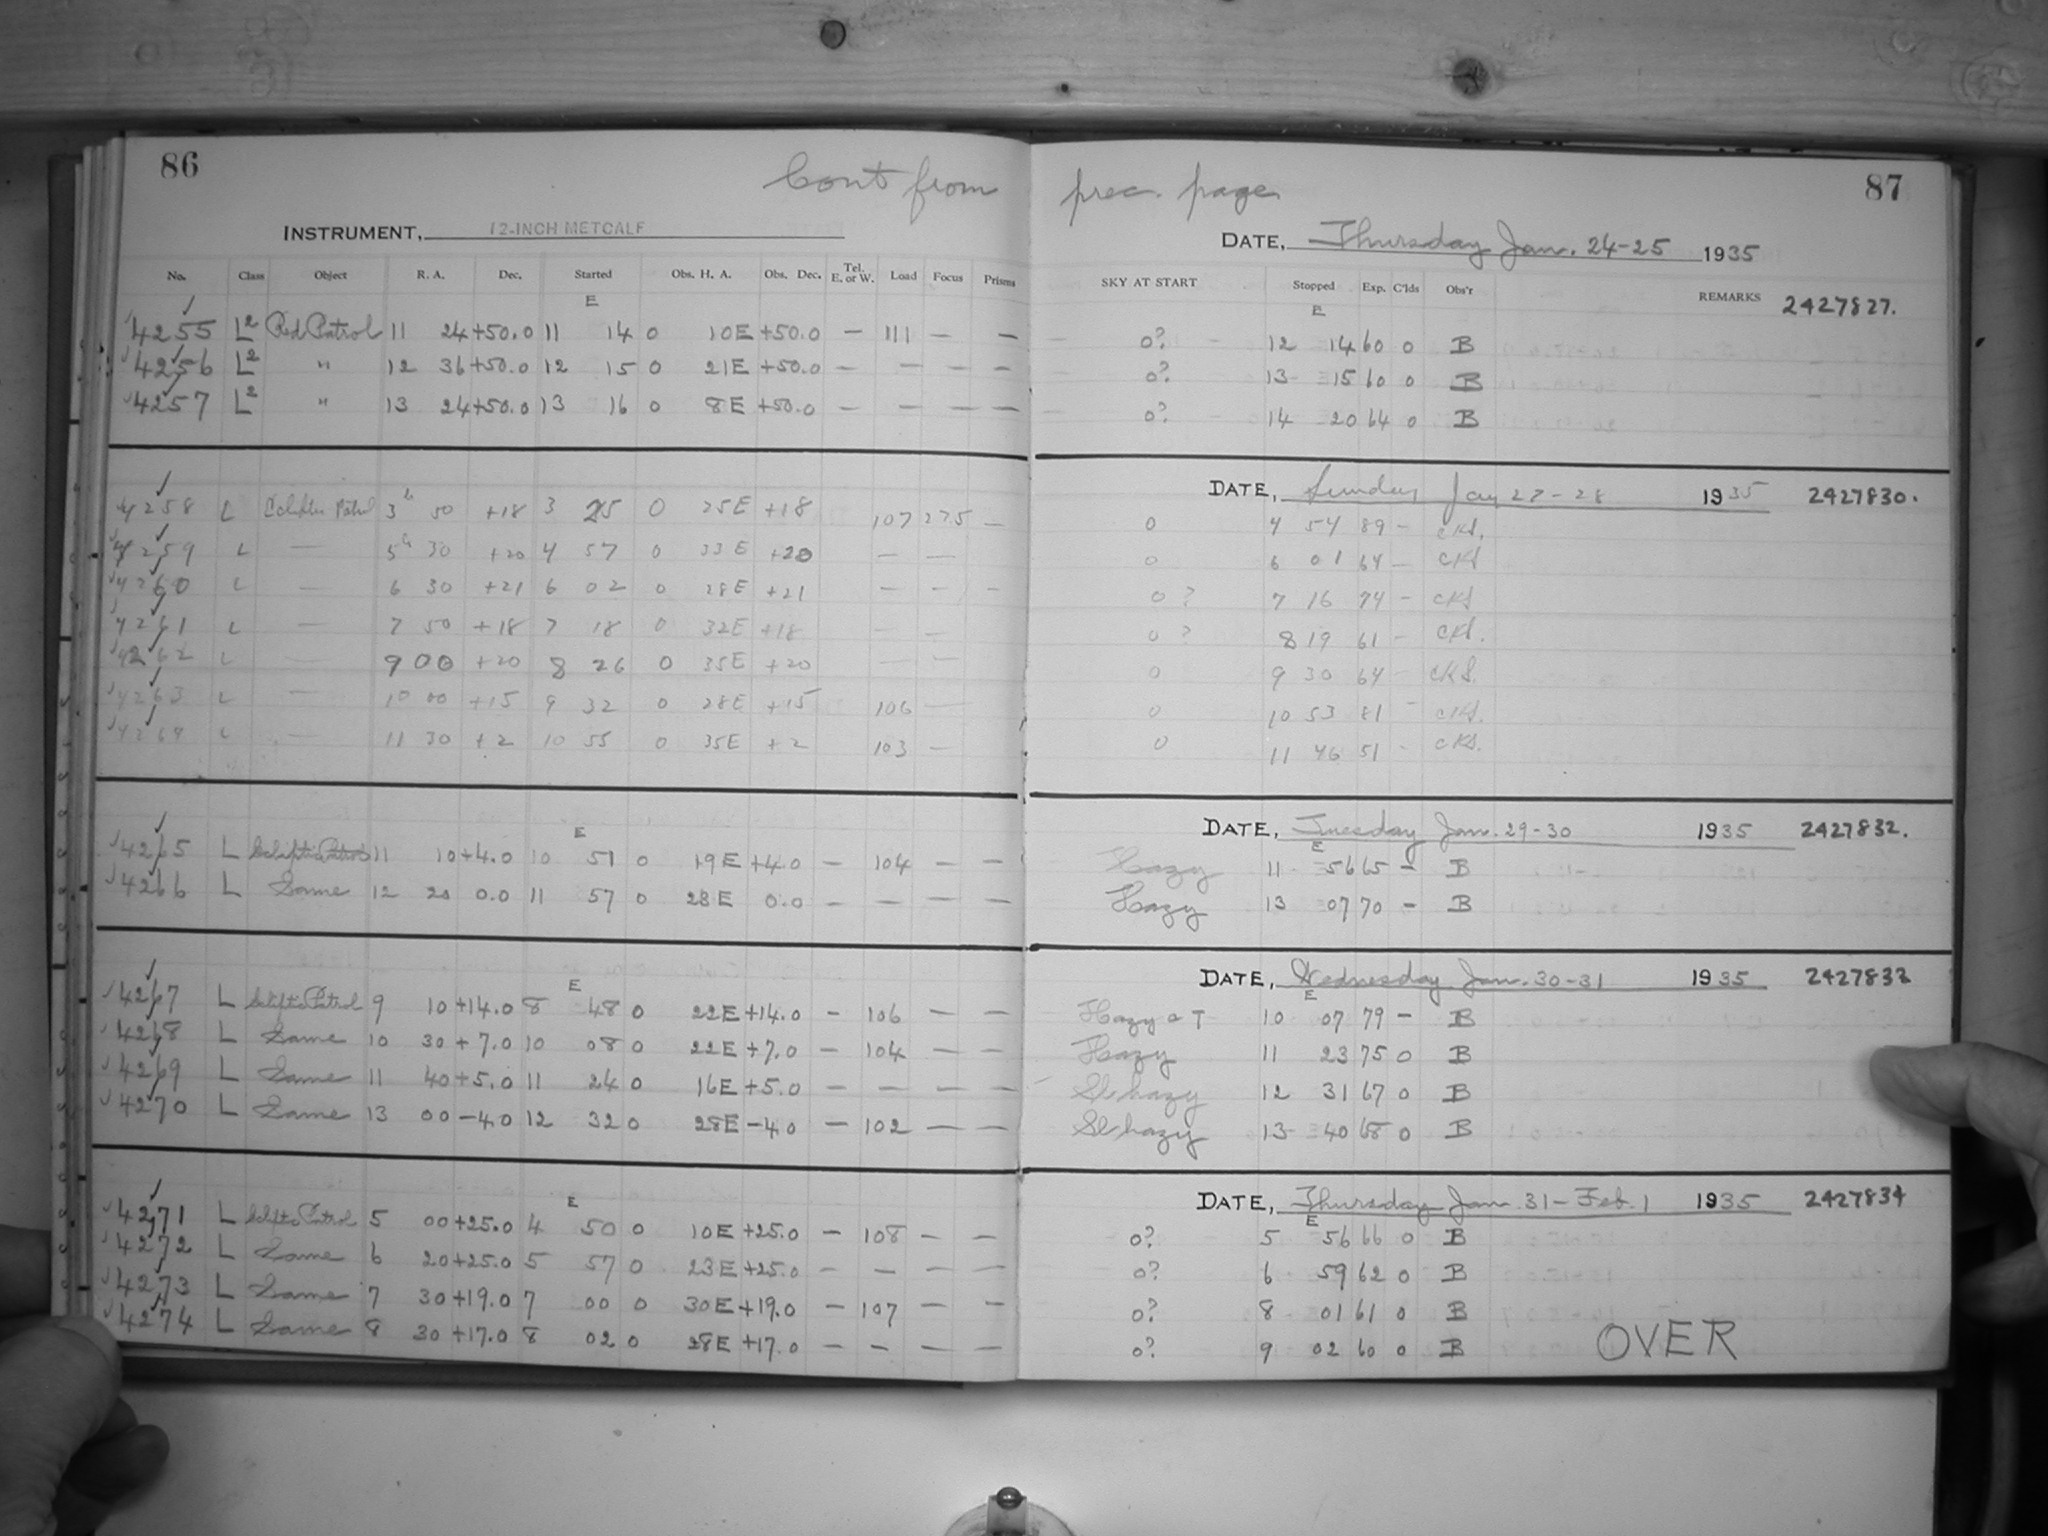 86
Cont from prec. page
87
INSTRUMENT, 12-INCH METCALF
DATE, Thursday Jan. 24-25 1935
No. Class Object R. A. Dec. Started Obs. H. A. Obs. Dec. Tel. E. or W. Load Focus Prisms SKY AT START Stopped Exp. C'lds Obs'r REMARKS 2427827.
E E
4255 L2 Red Patrol 11 24 +50.0 11 14 0 10E +50.0 — 111 — — 0? 12 14 60 0 B
4256 L2 " 12 36 +50.0 12 15 0 21E +50.0 — — — — 0? 13 15 60 0 B
4257 L2 " 13 24 +50.0 13 16 0 8E +50.0 — — — — 0? 14 20 64 0 B
DATE, Sunday Jan 27-28 1935 2427830.
4258 L Ecliptic Patrol 3h 50 +18 3 25 0 25E +18 107 275 — 0 4 54 89 — CKS.
4259 L — 5h 30 +20 4 57 0 33E +20 — — 0 6 01 64 — CKS
4260 L — 6 30 +21 6 02 0 28E +21 — — — 0? 7 16 74 — CKS
4261 L — 7 50 +18 7 18 0 32E +18 — — 0? 8 19 61 — CKS.
4262 L — 9 00 +20 8 26 0 35E +20 — — 0 9 30 64 — CKS.
4263 L — 10 00 +15 9 32 0 28E +15 106 — 0 10 53 81 — CKS.
4264 L — 11 30 +2 10 55 0 35E +2 103 — 0 11 46 51 — CKS.
DATE, Tuesday Jan. 29-30 1935 2427832.
E E
4265 L Ecliptic Patrol 11 10 +4.0 10 51 0 19E +4.0 — 104 — — Hazy 11 56 65 — B
4266 L Same 12 20 0.0 11 57 0 28E 0.0 — — — — Hazy 13 07 70 — B
DATE, Wednesday Jan. 30-31 1935 2427833
E E
4267 L Ecliptic Patrol 9 10 +14.0 8 48 0 22E +14.0 — 106 — — Hazy a T 10 07 79 — B
4268 L Same 10 30 +7.0 10 08 0 22E +7.0 — 104 — — Hazy 11 23 75 0 B
4269 L Same 11 40 +5.0 11 24 0 16E +5.0 — — — — Sl hazy 12 31 67 0 B
4270 L Same 13 00 -4.0 12 32 0 28E -4.0 — 102 — — Sl hazy 13 40 68 0 B
DATE, Thursday Jan. 31-Feb. 1 1935 2427834
E E
4271 L Ecliptic Patrol 5 00 +25.0 4 50 0 10E +25.0 — 108 — — 0? 5 56 66 0 B
4272 L Same 6 20 +25.0 5 57 0 23E +25.0 — — — — 0? 6 59 62 0 B
4273 L Same 7 30 +19.0 7 00 0 30E +19.0 — 107 — — 0? 8 01 61 0 B
4274 L Same 8 30 +17.0 8 02 0 28E +17.0 — — — — 0? 9 02 60 0 B
OVER